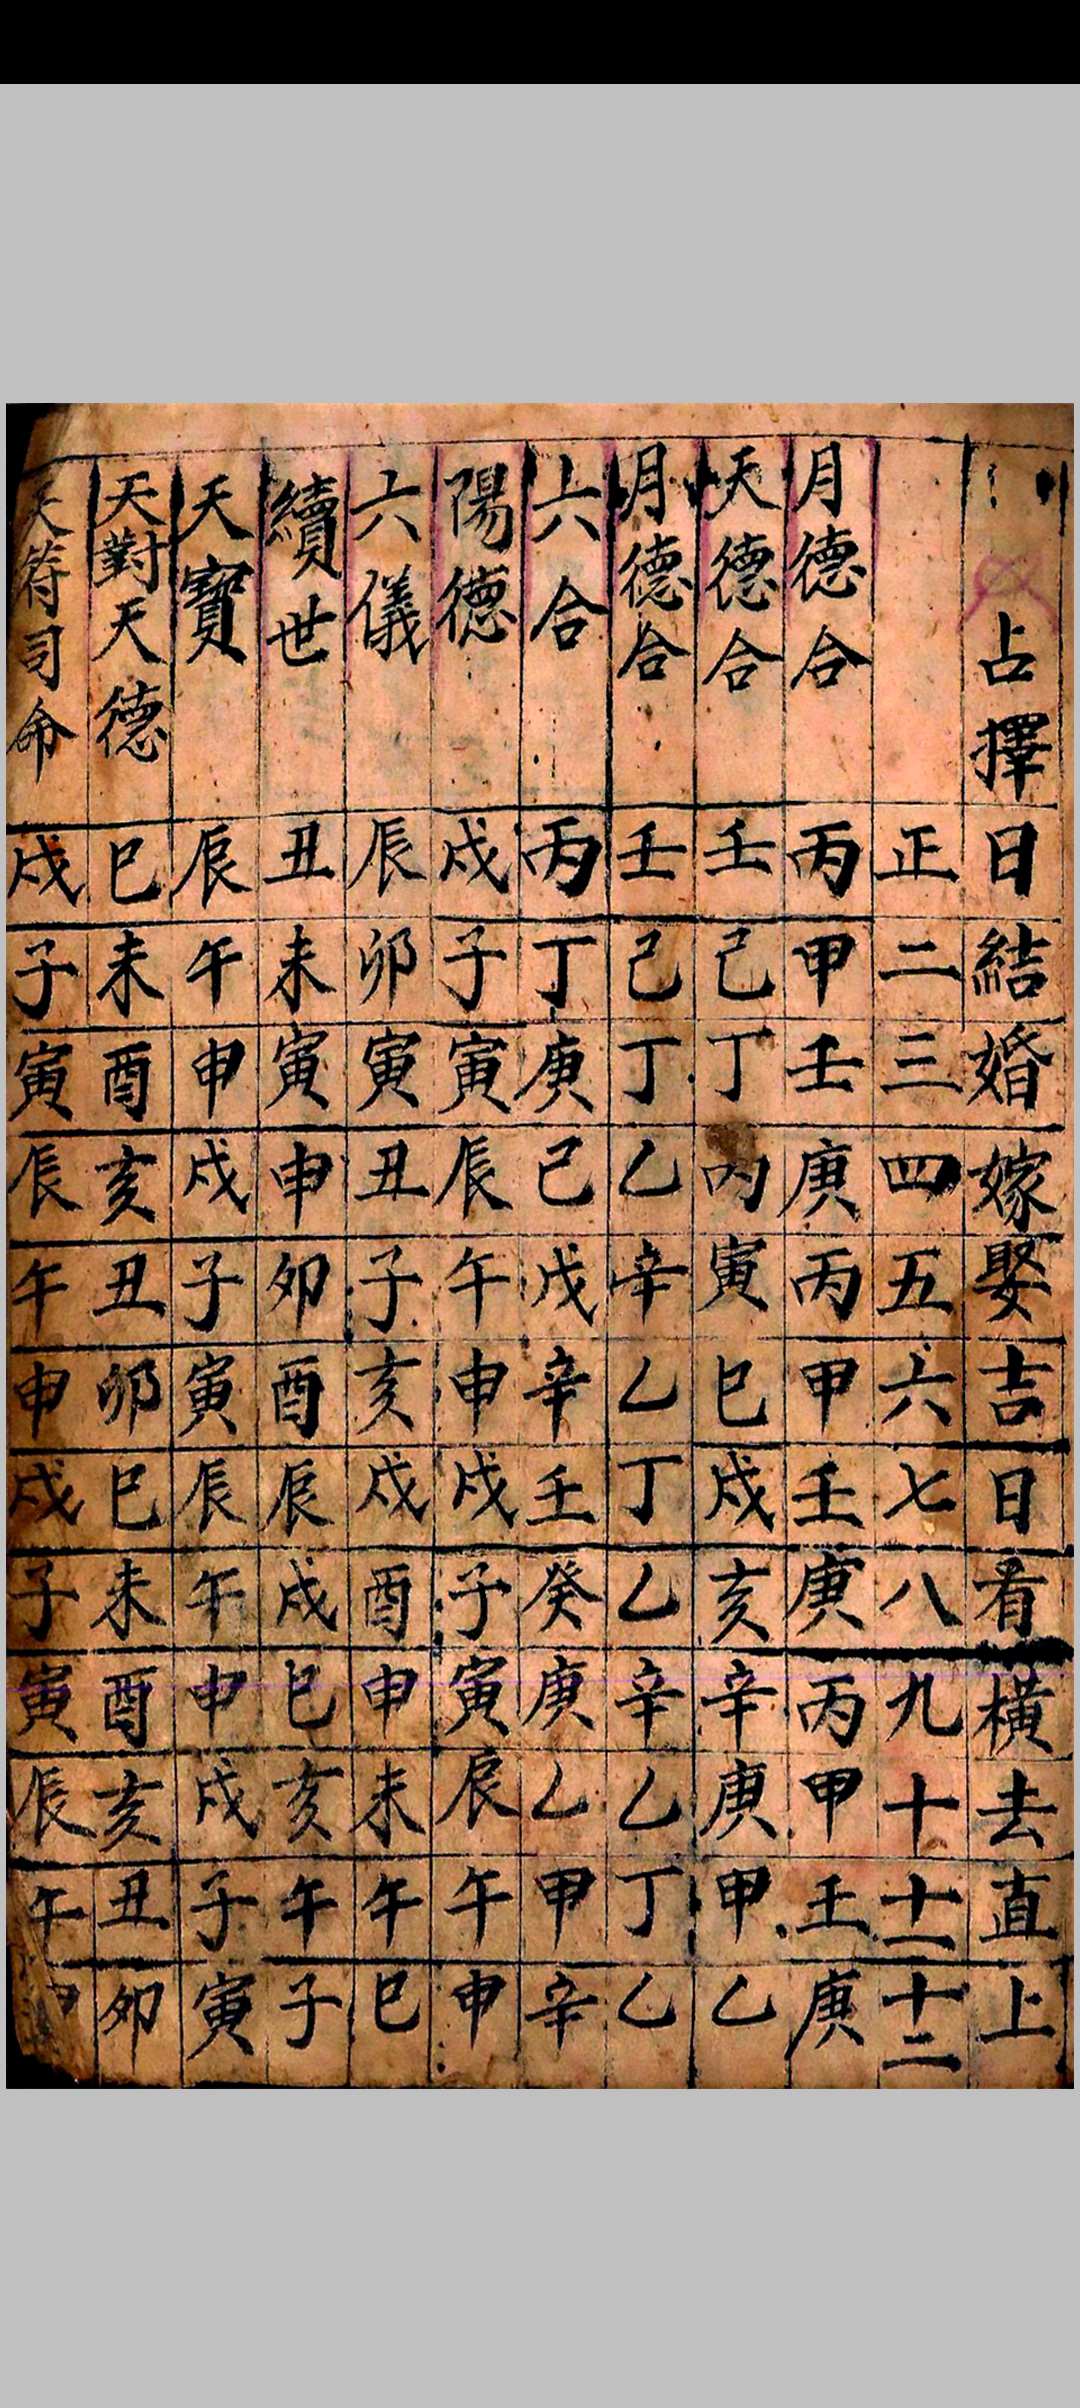 占擇日結婚嫁娶吉日看橫去直上
正二三四五六七八九十十一十二
月德合丙甲壬庚丙甲壬庚丙甲壬庚
天德合壬己丁丙寅巳戌亥辛庚甲乙
月德合壬己丁乙辛乙丁乙辛乙丁乙
六合丙丁庚己戊辛壬癸庚乙甲辛
陽德戌子寅辰午申戌子寅辰午申
六儀辰卯寅丑子亥戌酉申未午巳
續世丑未寅申卯酉辰戌巳亥午子
天寶辰午申戌子寅辰午申戌子寅
天對天德巳未酉亥丑卯巳未酉亥丑卯
天符司命戌子寅辰午申戌子寅辰午